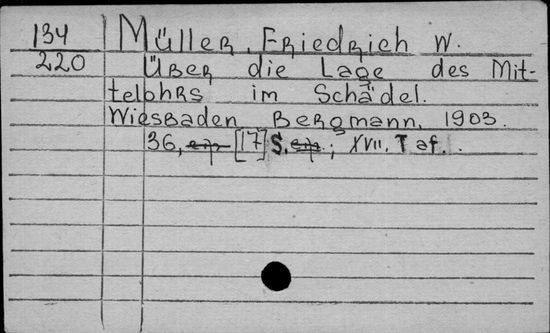 134 Müller, Friedrich W.
220 Über die Lage des Mit-
telohrs im Schädel.
Wiesbaden Bergmann, 1903.
36, [17] S. ; XVII. Taf.